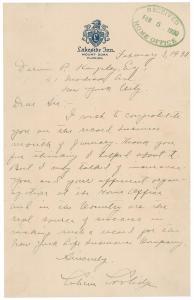 Lakeside Inn
MOUNT DORA
FLORIDA
RECEIVED
FEB 5 1930
HOME OFFICE
February 1, 1930
Darwin P. Kingsley, Esq
51 Madison Ave
New York City
Dear Sir:-
I wish to congratulate
you on the record business
month of January. Thank you
for thinking I helped about it.
But I may
you and your
at the Home Office
and in the Country are the
real source of success in
making such a record for our
New York Life Insurance Company
Sincerely
Calvin Coolidge